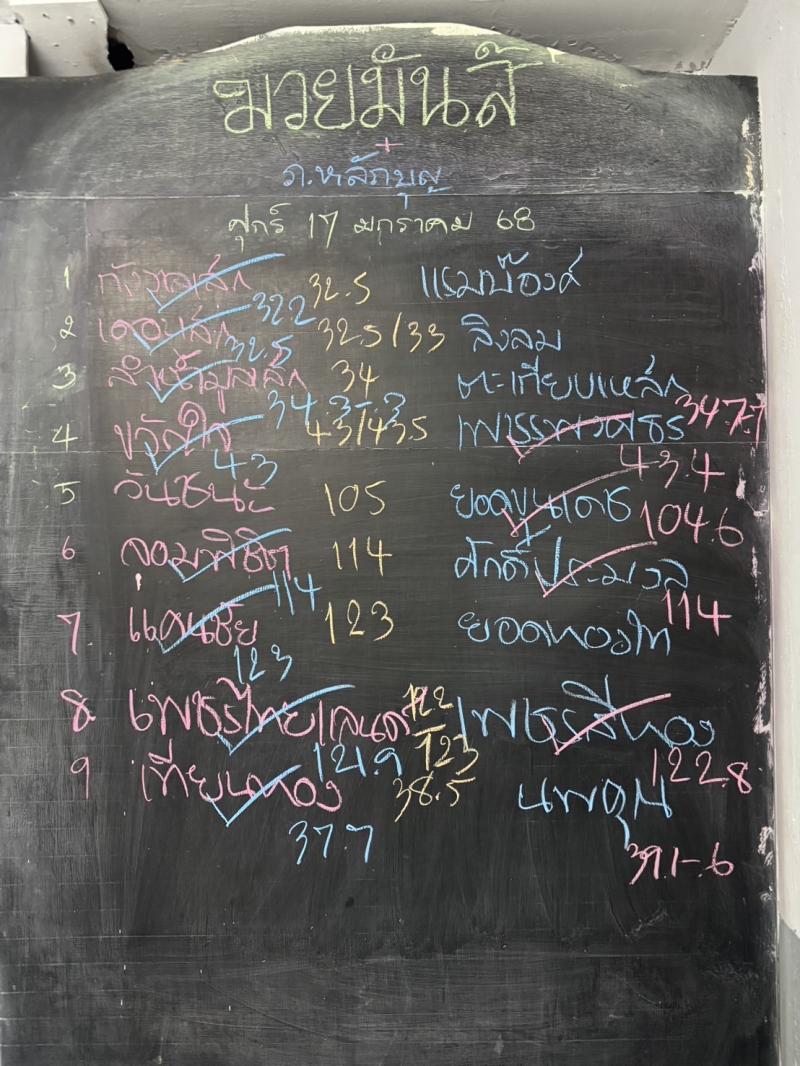 มวยมันส์
+
ภ.หลักบุญ
ศุกร์ 17 มกราคม 68
1 กังวลเล็ก 32.5 แรมบ๊องค์
322
2 32.5/33 สิงลม
32.5
3 34 ตะเกียบเหล็ก
34.3-.3 34.7.7
4 ขวัญใจ 43/43.5
43 43.4
5 วันชนะ 105 ยอดขุนเดช
104.6
6 จอมพิชิต 114 ศักดิ์ประมวล
114 114
7 แดนชัย 123 ยอดทองไท
123
8 เพชรไทยแลนด์ 122 เพชรสีทอง
121.9 123 122.8
9 เทียนทอง 38.5 นพคุณ
37.7 39.1-.6